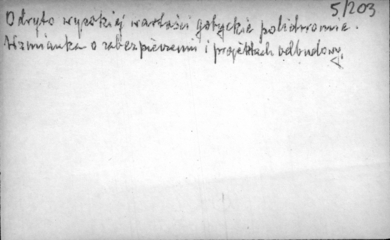 5/203
Odryto wysokiej wartości gotyckie polichromie.
Wzmianka o zabezpieczeniu i projektach odbudowy.